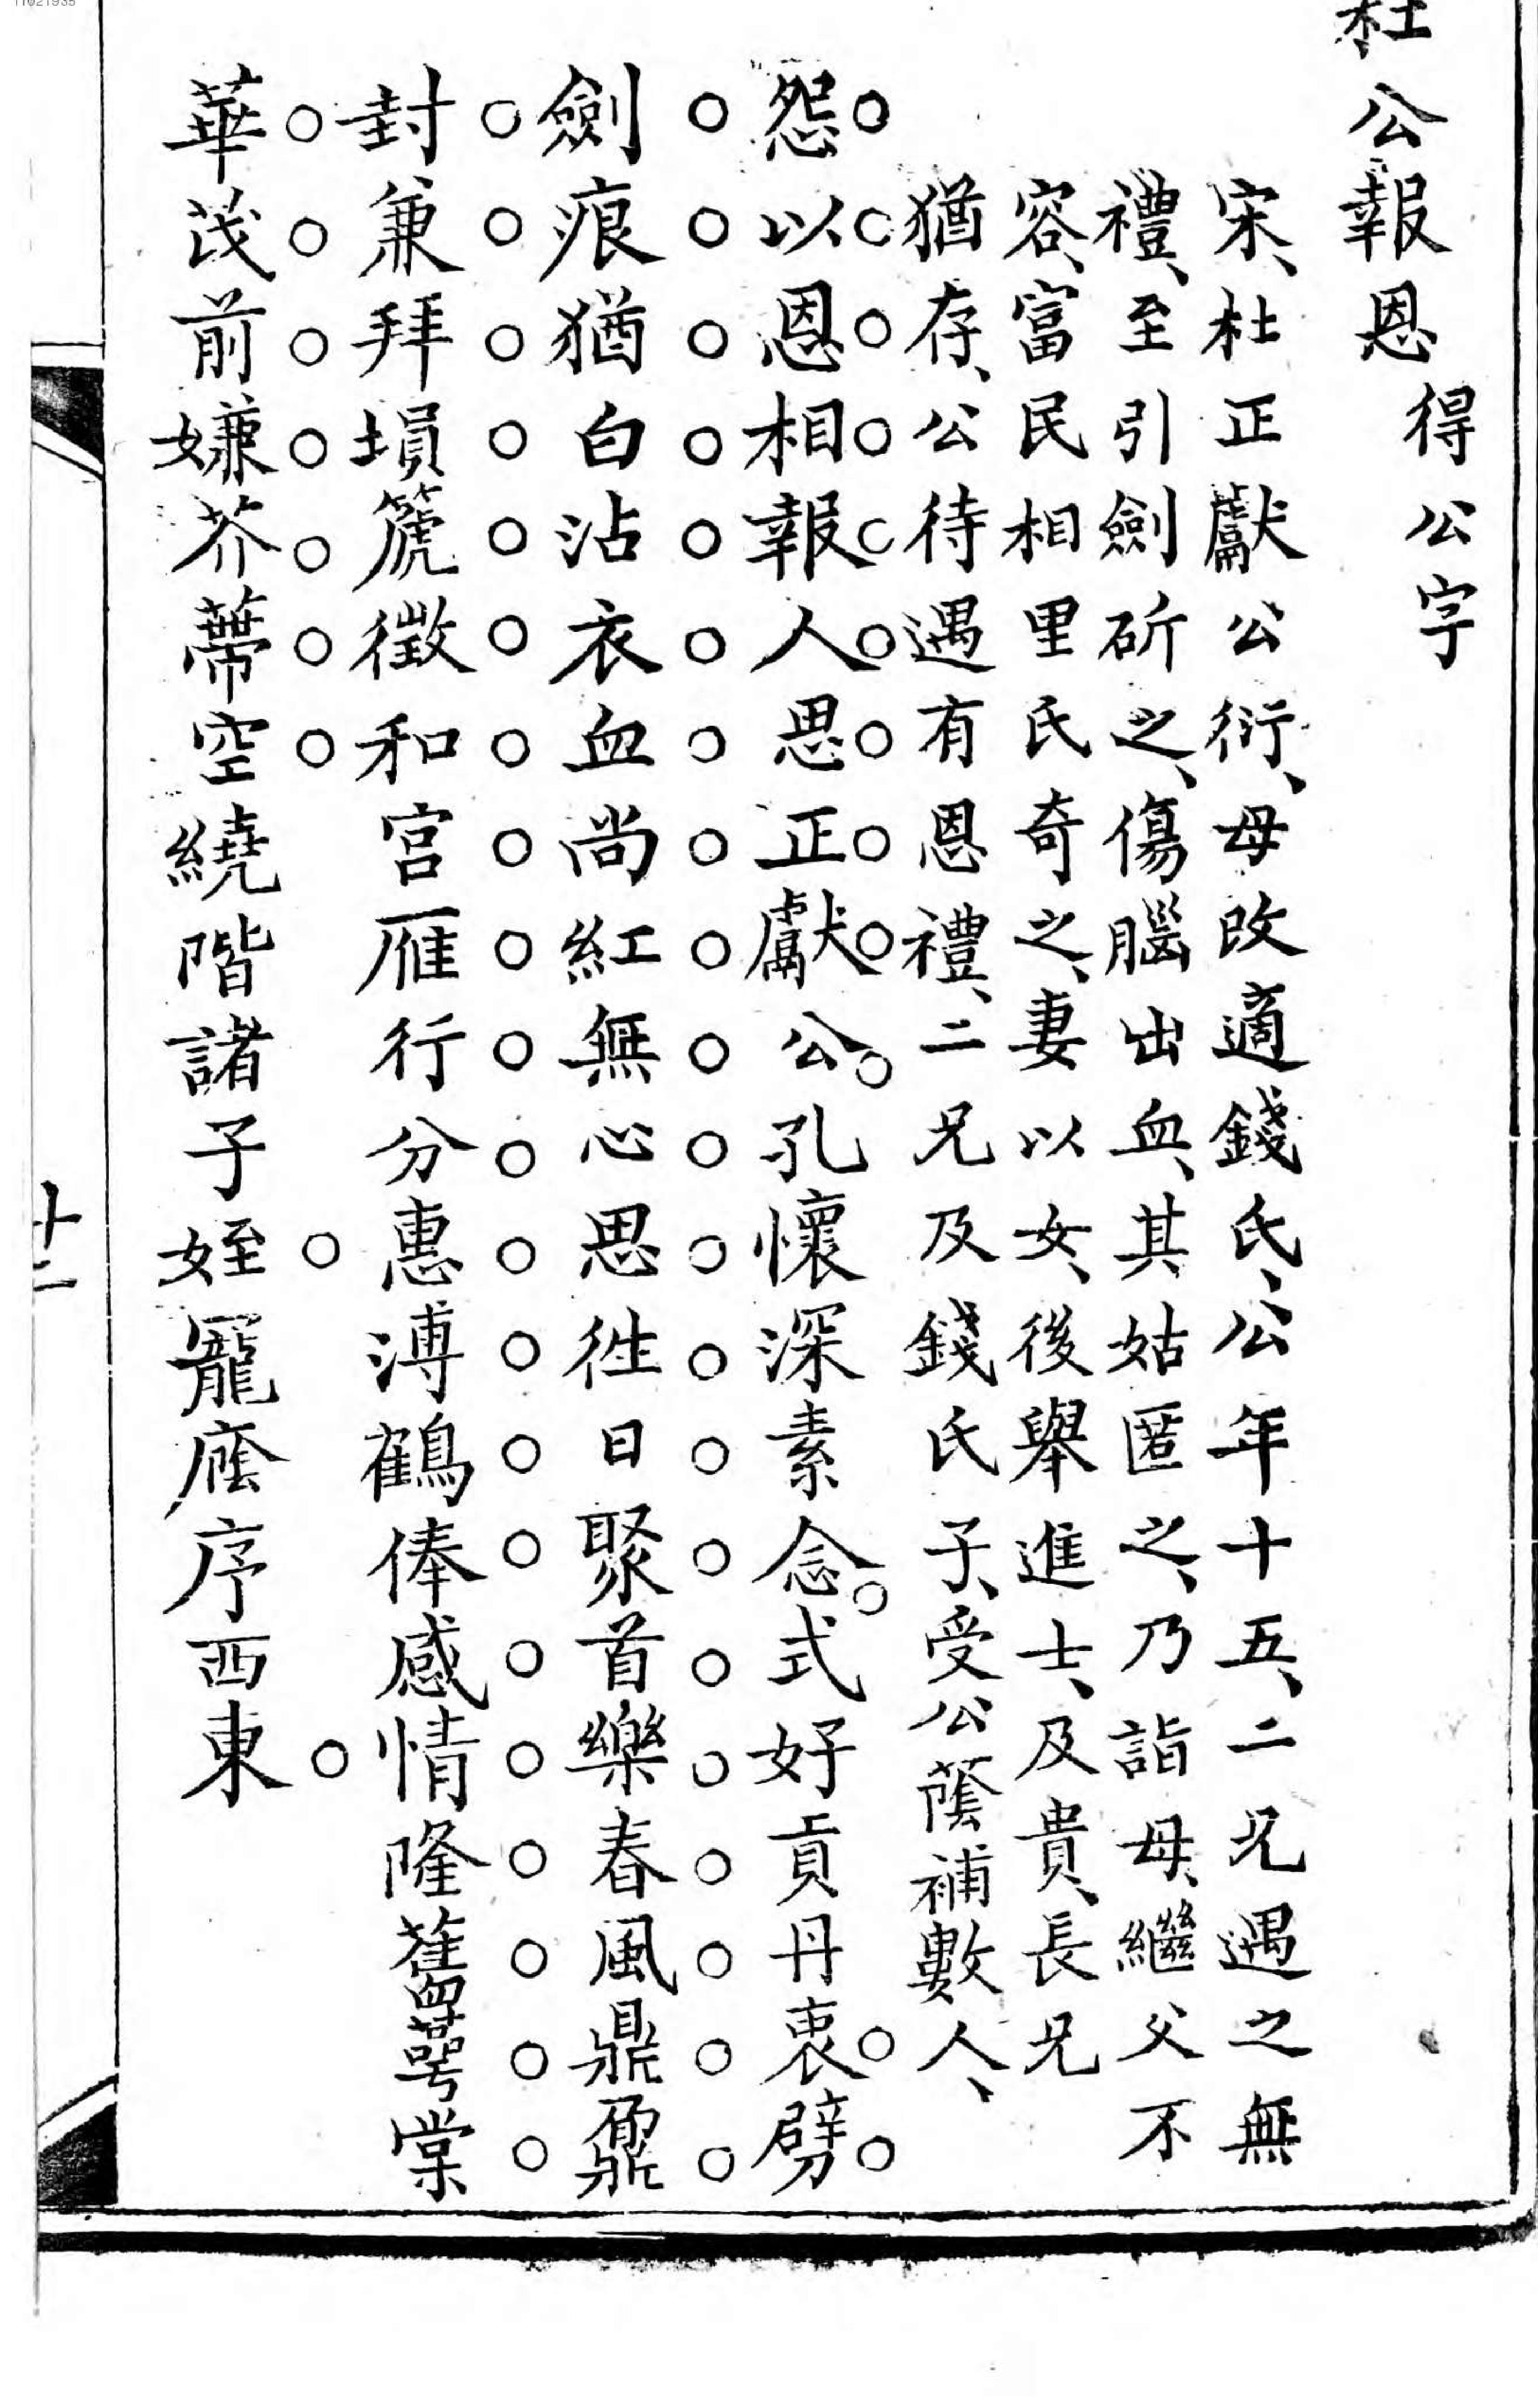 杜公報恩 得公字
宋、杜正獻公衍、母改適錢氏、公年十五、二兄遇之無
禮、至引劍斫之、傷腦出血、其姑匿之、乃詣母、繼父不
容、富民相里氏奇之、妻以女、後舉進士、及貴、長兄
猶存、公待遇有恩禮、二兄及錢氏子、受公蔭補數人、
怨以恩相報人思正獻公孔懷深素念式好貢丹衷劈
劍痕猶白沾衣血尚紅無心思徃日聚首樂春風鼎鼐
封兼拜塤箎徵和宮雁行分惠溥鶴俸感情隆舊萼棠
華茂前嫌芥蔕空繞階諸子姪寵廕序西東
十二
11021935